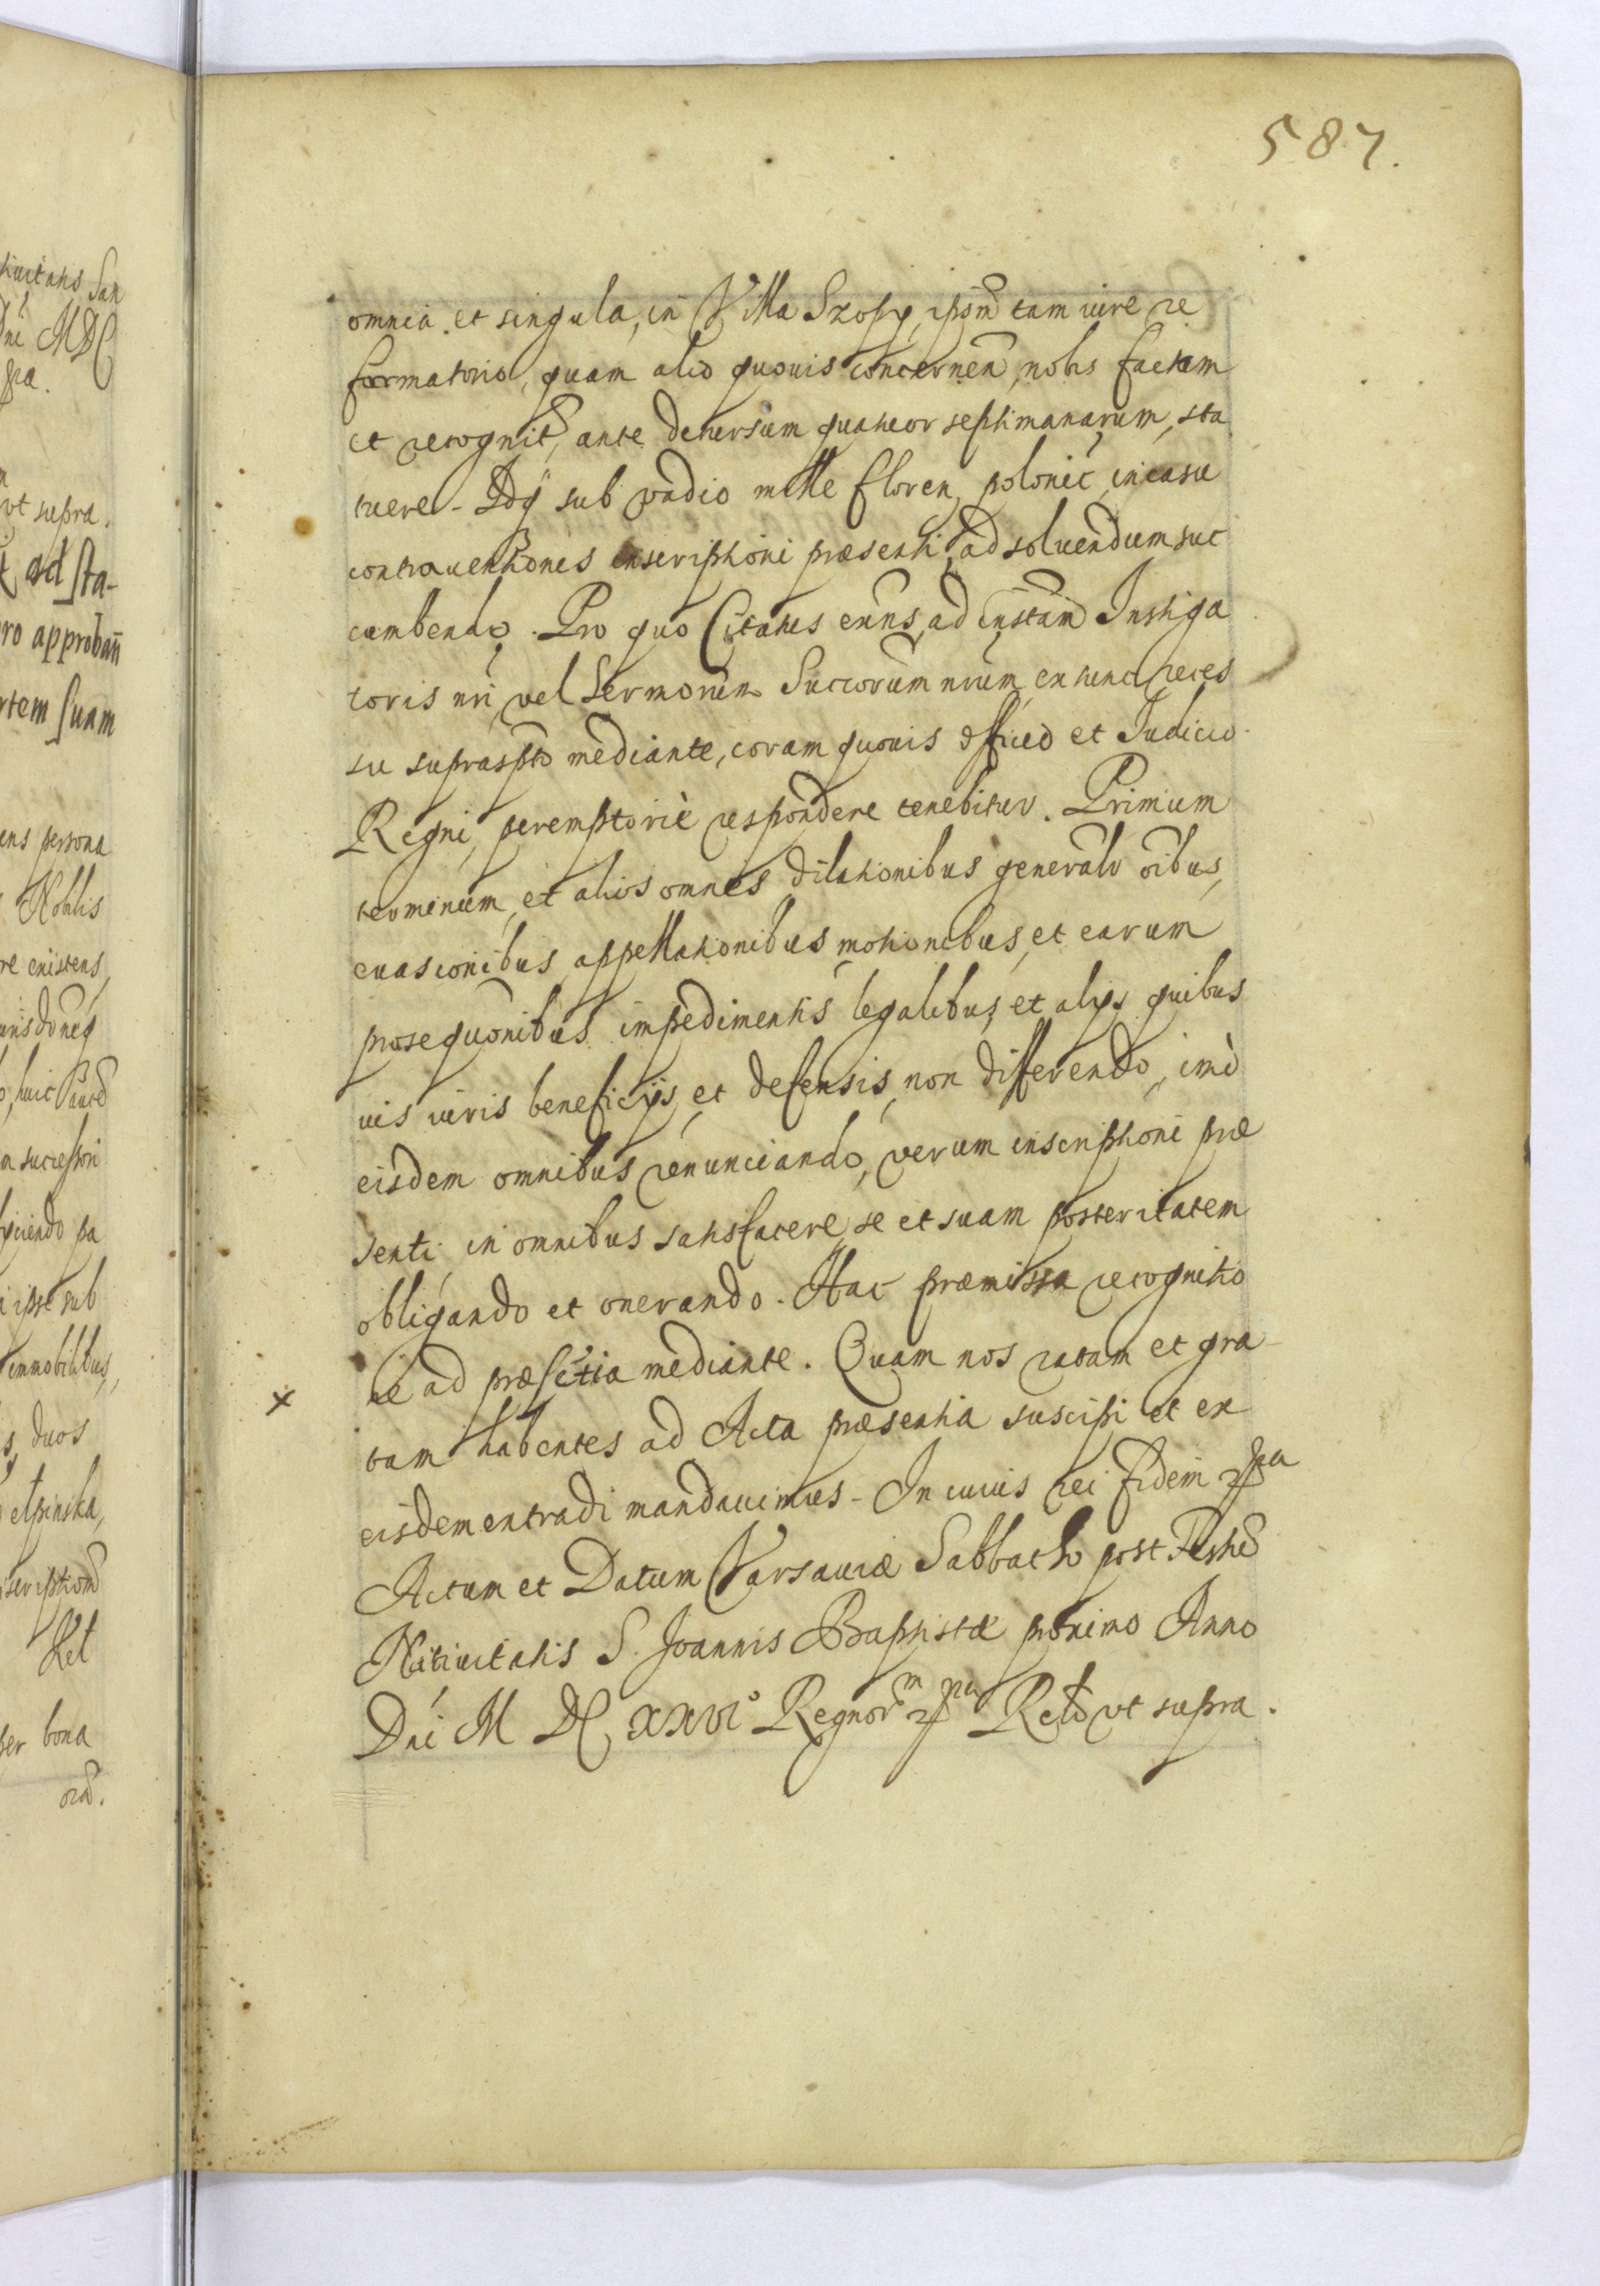 587.
omnia et singula, in Villa Szopy, ipsm̄ tam iure re
formatorio, quam alio quouis concernen̄, nobis factam
et recognit̄, ante decursum quatuor septimanarum, sta
tuere. Idq̄ sub vadio mille floren, polonic̄, in casu
contrauentiones inscriptioni præsenti, ad soluendum suc
cumbendo. Pro quo Citatus enns, ad instam̄ Instiga
toris nri, vel Sermorum Succorum nrum, ex tunc reces
su suprasptō mediante, coram quouis officio et Iudicio
Regni, peremptoriè respondere tenebitur. Primum
terminum, et alios omnes dilationibus general oībus,
euasionibus, appellationibus, motionibus, et earum
prosequōnibus impedimentis legalibus, et alijs quibus
uis iuris beneficijs, et defensis, non differendo, imò
eisdem omnibus renunciando, verum inscriptioni præ
senti in omnibus satisfacere, se et suam posteritatem
obligando et onerando. Hac præmissa recognitio
ne ad præsētia mediante. Quam nos ratam et gra-
tam habentes ad Acta præsentia suscipi et ex
eisdem extradi mandauimus. In cuius rei fidem
Actum et Datum Varsauiæ Sabbatho post Festū
Natiuitatis S. Joannis Baptistæ proximo Anno
Dni M DC XXVIº Regnorm̄ Reltō vt supra.
x
tiuitatis San
Dni MDC
pra.
vt supra.
ad sta-
ro approban̄
rtem suam
ens persona
Nobilis
re existens,
a successori
ijciendo pa
ipse sub
immobilibus,
duos
Rel
per bona